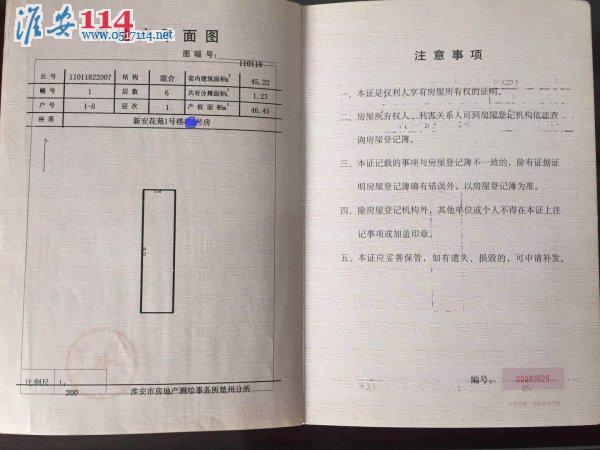 淮安114
www.0517114.net
平面图
图幅号：
110118
丘号 11011822007 结构 混合 套内建筑面积㎡ 45.22
幢号 1 层数 6 共有分摊面积㎡ 1.23
户号 1-8 层次 1 产权面积㎡ 46.45
座落 新安花苑1号楼 号房
比例尺 1：200
淮安市房地产测绘事务所楚州分所
注意事项
一、本证是权利人享有房屋所有权的证明。
二、房屋所有权人、利害关系人可到房屋登记机构依法查
询房屋登记簿。
三、本证记载的事项与房屋登记簿不一致的，除有证据证
明房屋登记簿确有错误外，以房屋登记簿为准。
四、除房屋登记机构外，其他单位或个人不得在本证上注
记事项或加盖印章。
五、本证应妥善保管，如有遗失、损毁的，可申请补发。
编号：